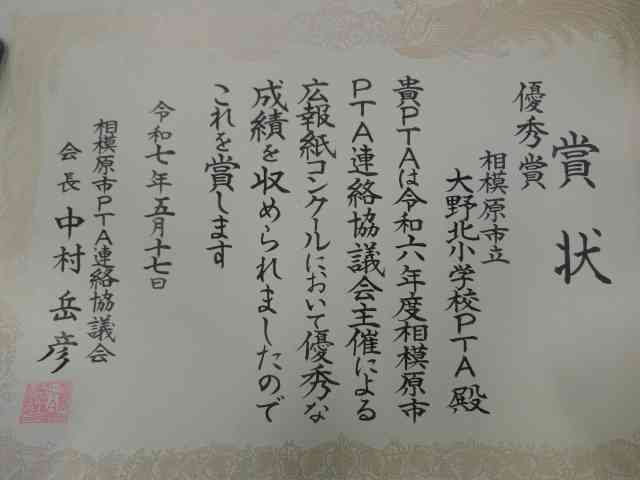 賞状
優秀賞
相模原市立
大野北小学校PTA殿
貴PTAは令和六年度相模原市
PTA連絡協議会主催による
広報紙コンクールにおいて優秀な
成績を収められましたので
これを賞します
令和七年五月十七日
相模原市PTA連絡協議会
会長 中村岳彦